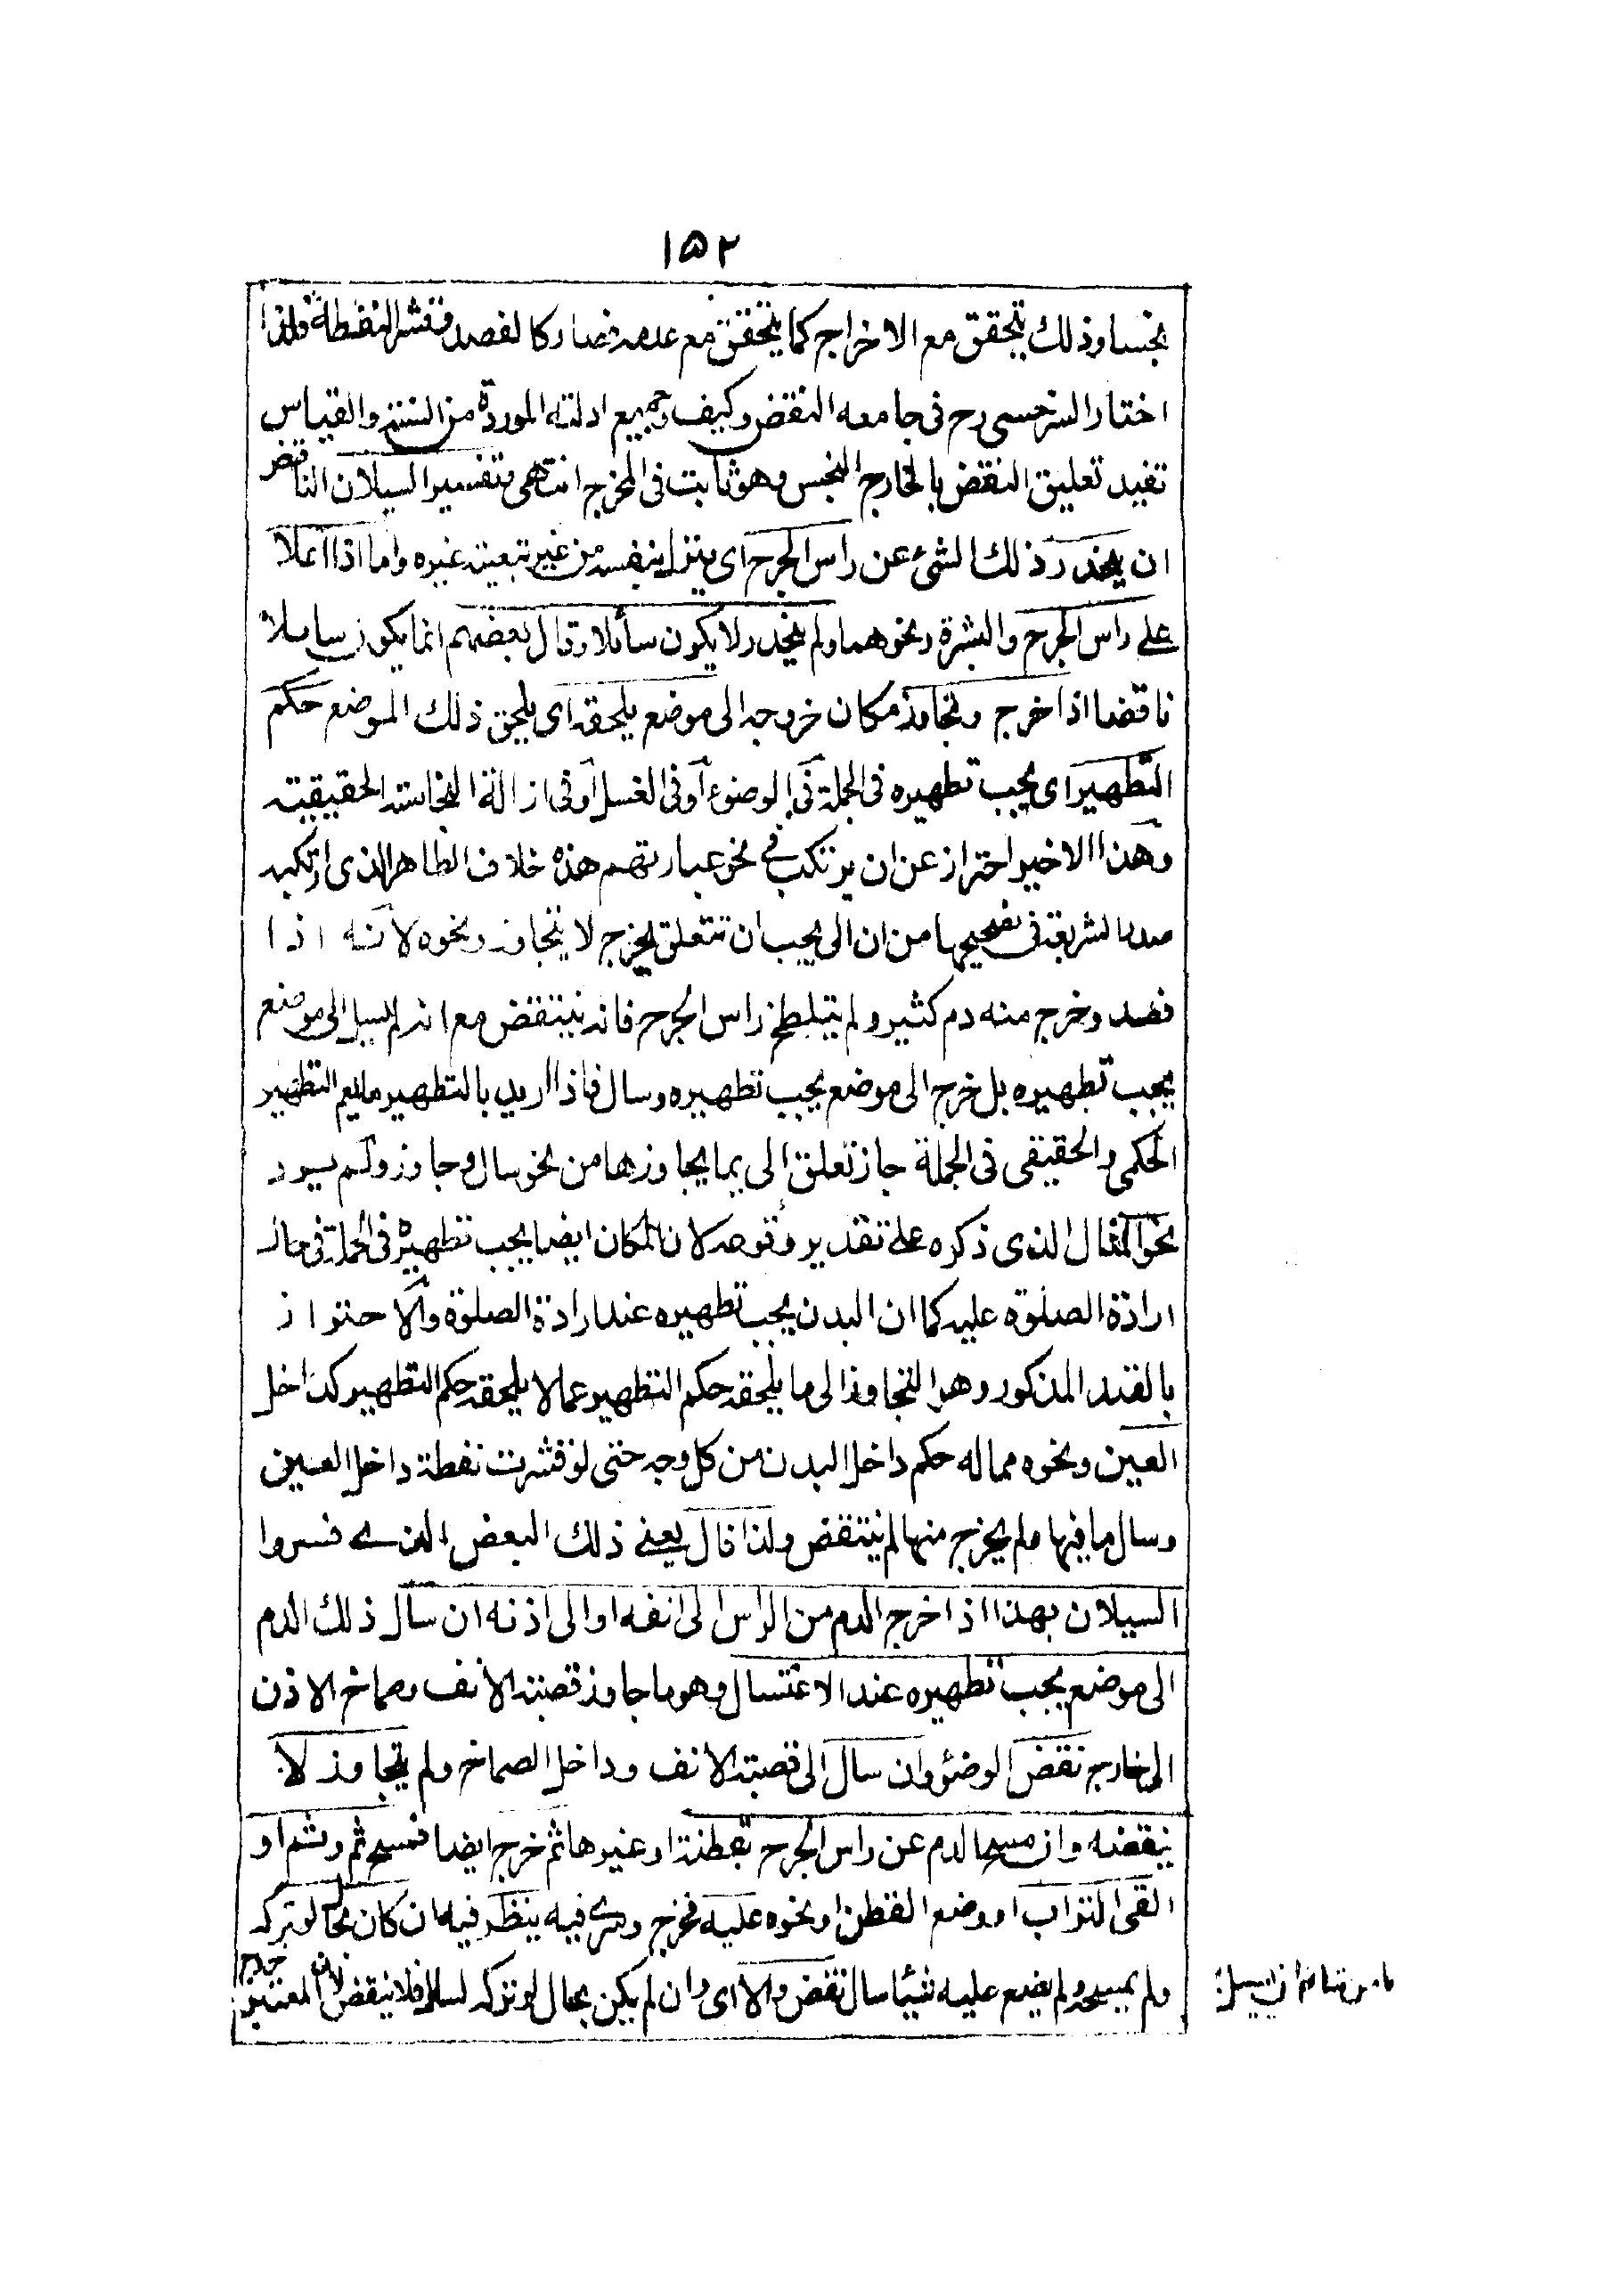 ١٥٢
نجسا وذلك يتحقق مع الاخراج كما يتحقق مع عدمه فصار كالفصد وقشر النفطة ولذا
اختار السرخسى رح فى جامعه النقض وكيف وجميع ادلته الموردة من السنة والقياس
تفيد تعليق النقض بالخارج النجس وهو ثابت فى المخرج انتهى وتفسير السيلان الناقض
ان ينحدر ذلك الشئ عن راس الجرح اى ينزل بنفسه من غير تبعية غيره واما اذا علا
على راس الجرح والبشرة ونحوهما ولم ينحدر لا يكون سائلا وقال بعضهم انما يكون سايلا
ناقضا اذا خرج وتجاوز مكان خروجه الى موضع يلحقه اى يلحق ذلك الموضع حكم
التطهير اى يجب تطهيره فى الجملة فى الوضوء او فى الغسل او فى ازالة النجاسة الحقيقية
وهذا الاخير احتراز عن ان يرتكب فى نحو عبارتهم هذه خلاف الظاهر الذى ارتكبه
صدر الشريعة فى تصحيحها من ان الى يجب ان تتعلق بخرج لا بتجاوز ونحوه لانه اذا
فصد وخرج منه دم كثير ولم يتلطخ راس الجرح فانه ينتقض مع انه لم يسل الى موضع
يجب تطهيره بل خرج الى موضع يجب تطهيره وسال فاذا اريد بالتطهير ما يعم التطهير
الحكمى والحقيقى فى الجملة جاز تعلق الى بما يجاوزها من نحو سال وجاوز ولم يرد
نحو المثال الذى ذكره على تقدير وقوعه لان المكان ايضا يجب تطهيره فى الجملة فى حال
ارادة الصلوة عليه كما ان البدن يجب تطهيره عند ارادة الصلوة والاحتراز
بالقيد المذكور وهو التجاوز الى ما يلحقه حكم التطهير عما لا يلحقه حكم التطهير كداخل
العين ونحوه مما له حكم داخل البدن من كل وجه حتى لو قشرت نفطة داخل العين
وسال ما فيها ولم يخرج منها لم ينتقض ولذا قال يعنى ذلك البعض الذى فسروا
السيلان بهذا اذا خرج الدم من الراس الى انفه او الى اذنه ان سال ذلك الدم
الى موضع يجب تطهيره عند الاغتسال وهو ما جاوز قصبة الانف وصماخ الاذن
الى خارج نقض الوضؤ وان سال الى قصبة الانف وداخل الصماخ ولم يتجاوز لا
ينقضه وان مسح الدم عن راس الجرح بقطنة او غيرها ثم خرج ايضا فمسح ثم وثم او
القى التراب او وضع القطن او نحوه عليه فخرج وسرى فيه ينظر فيه ان كان بحال لو تركه
ولم يمسحه ولم يضع عليه شيئا سال نقض والا اى وان لم يكن بحال لو تركه لسال فلا ينقض لان المعتبر خروج
ما من شانه ان يسيل